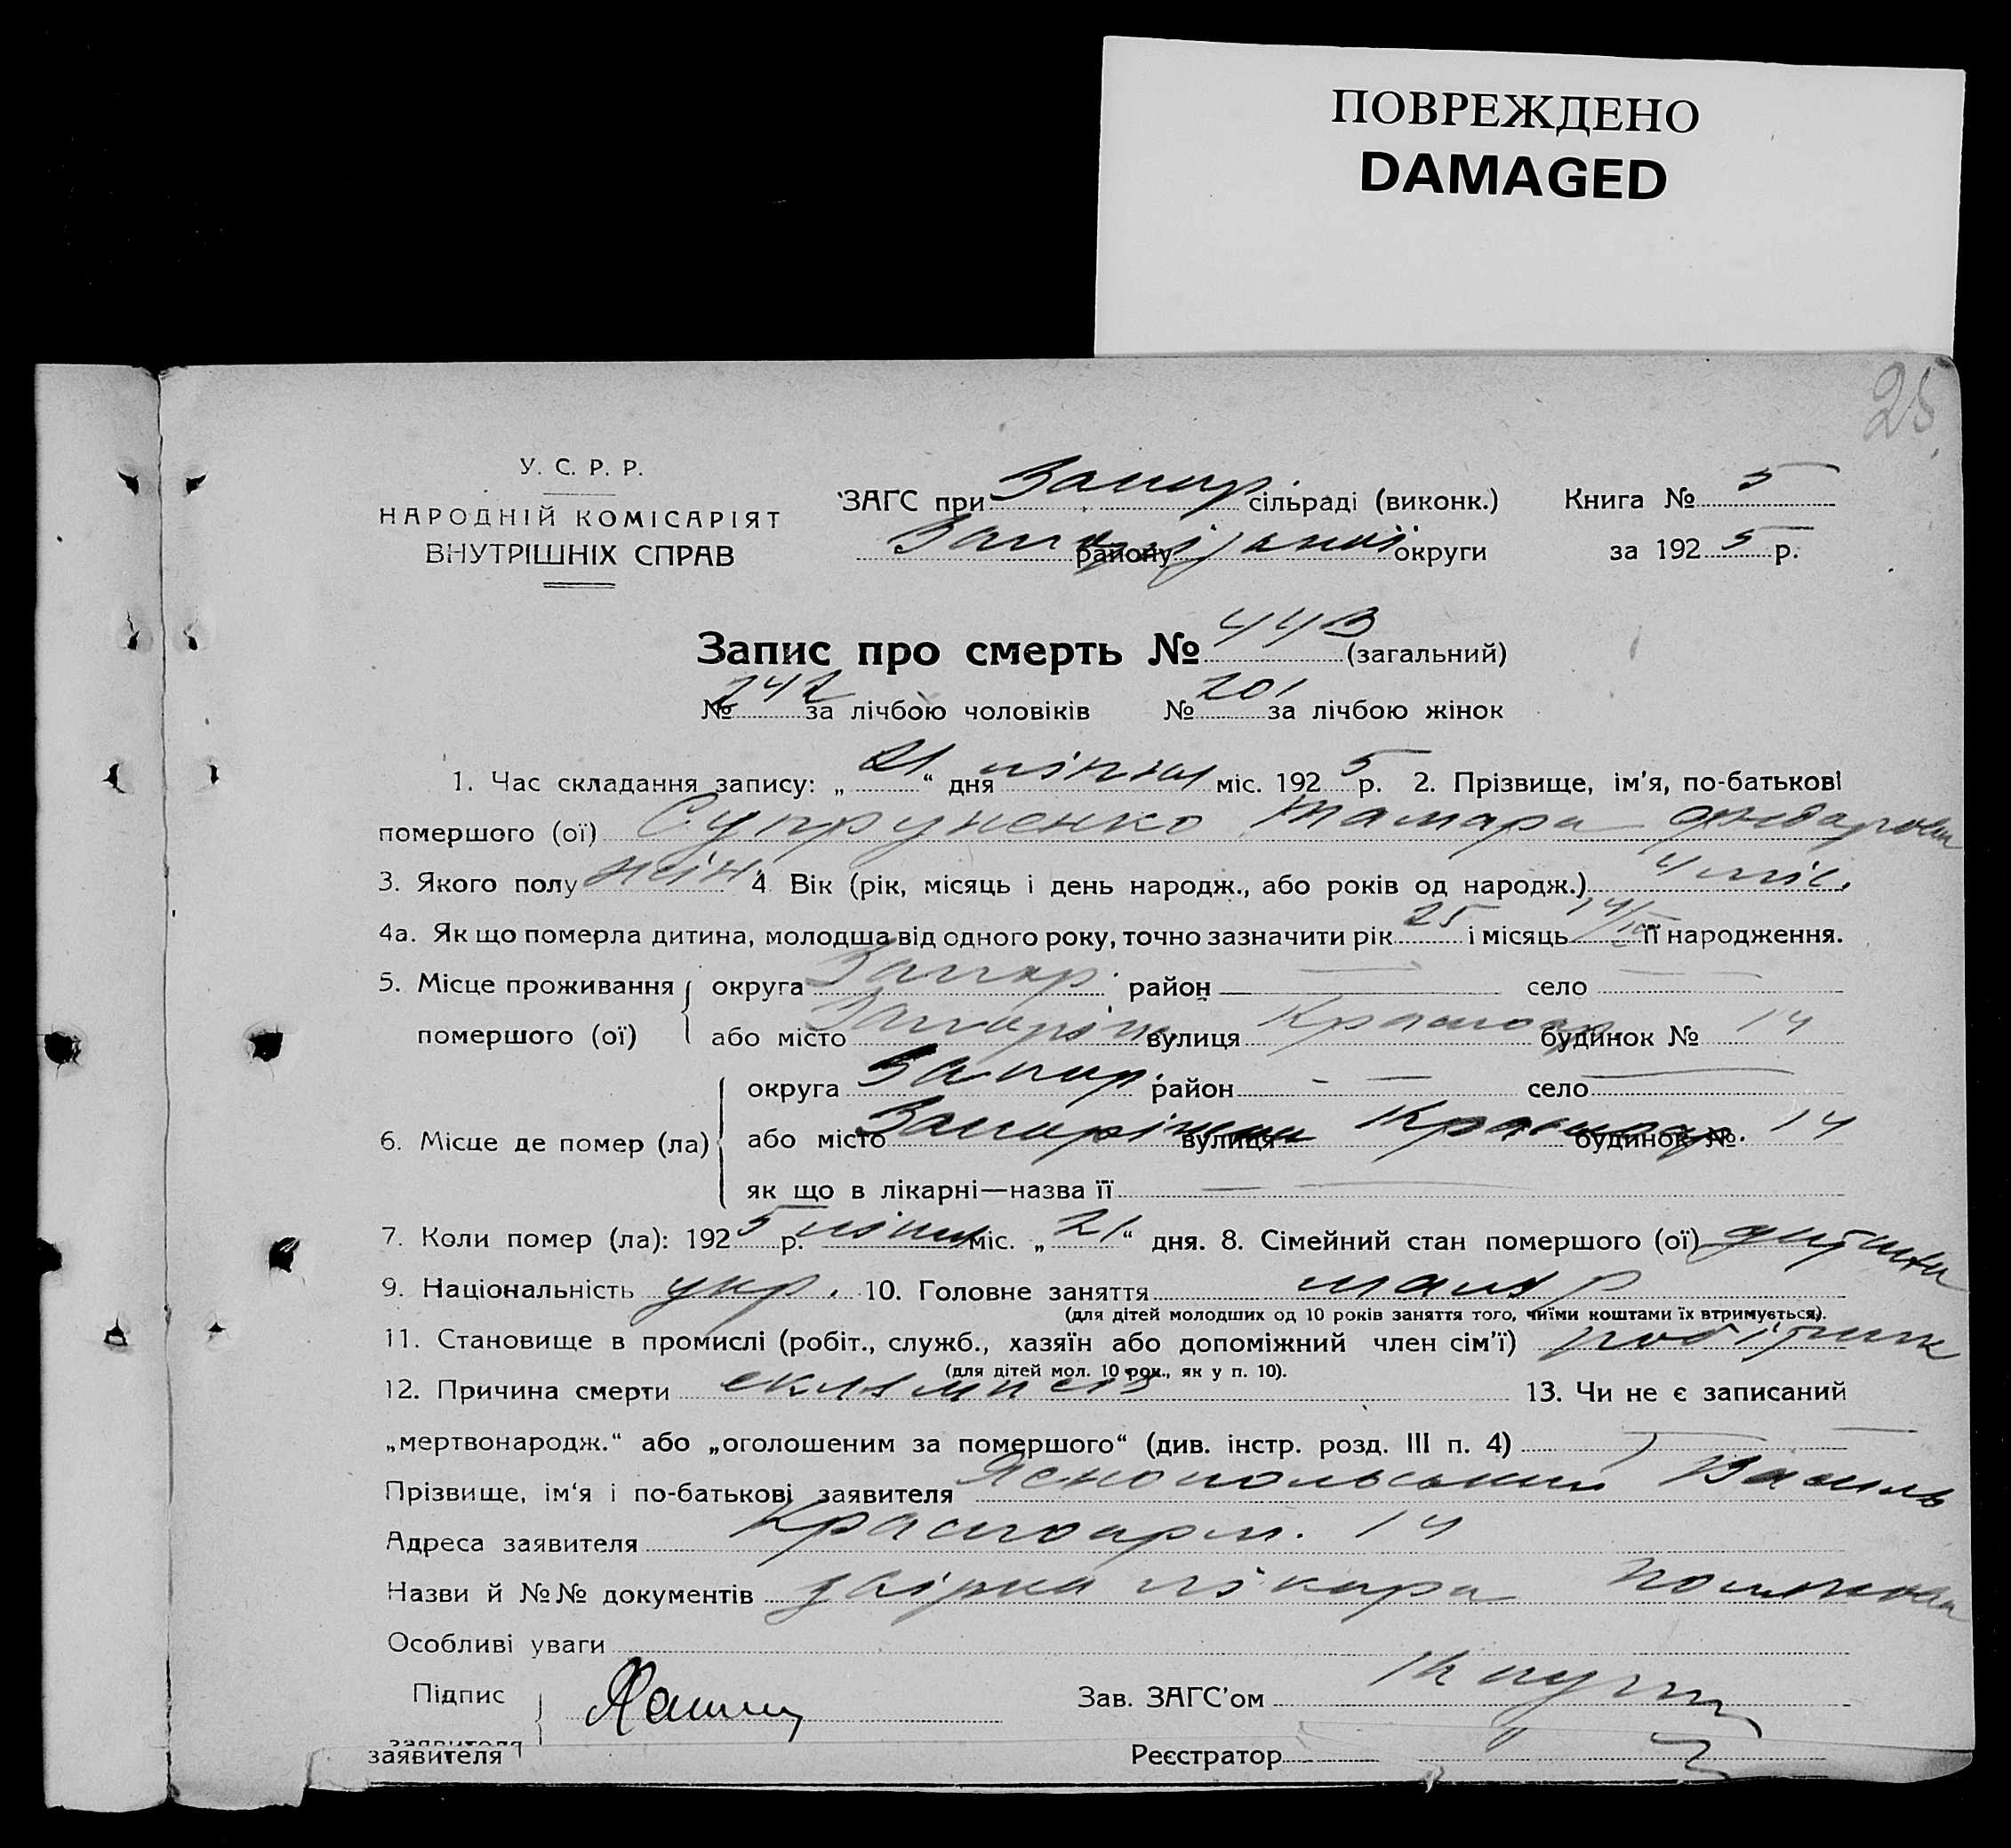 ПОВРЕЖДЕНО
DAMAGED
25
У. С. Р. Р.
НАРОДНІЙ КОМІСАРІЯТ
ВНУТРІШНІХ СПРАВ
ЗАГС при Запор. сільраді (виконк.) Книга № 5
району округи за 1925 р.
Запис про смерть № 443 (загальний)
№ 242 за лічбою чоловіків № 201 за лічбою жінок
1. Час складання запису: „21“ дня липня міс. 1925 р. 2. Прізвище, ім'я, по-батькові
помершого (ої) Супруненко Тамара
3. Якого полу жін. 4 Вік (рік, місяць і день народж., або років од народж.) 4 міс.
4а. Як що померла дитина, молодша від одного року, точно зазначити рік 25 і місяць її народження.
5. Місце проживання округа Запор. район — село —
помершого (ої) або місто вулиця будинок № 14
округа Запор. район — село —
6. Місце де помер (ла) або місто вулиця будинок № 14
як що в лікарні—назва її —
7. Коли помер (ла): 1925 р. липня міс. „21“ дня. 8. Сімейний стан помершого (ої) дитина
9. Національність укр. 10. Головне заняття маляр
(для дітей молодших од 10 років заняття того, чиїми коштами їх втримується).
11. Становище в промислі (робіт., служб., хазяїн або допоміжний член сім'ї) робітник
(для дітей мол. 10 рок., як у п. 10).
12. Причина смерти еклямпсія 13. Чи не є записаний
„мертвонародж.“ або „оголошеним за помершого“ (див. інстр. розд. III п. 4) —
Прізвище, ім'я і по-батькові заявителя Яснопольський Василь
Адреса заявителя Красноарм. 14
Назви й №№ документів довірка лікара
Особливі уваги
Підпис Зав. ЗАГС'ом
заявителя
заявителя Реєстратор